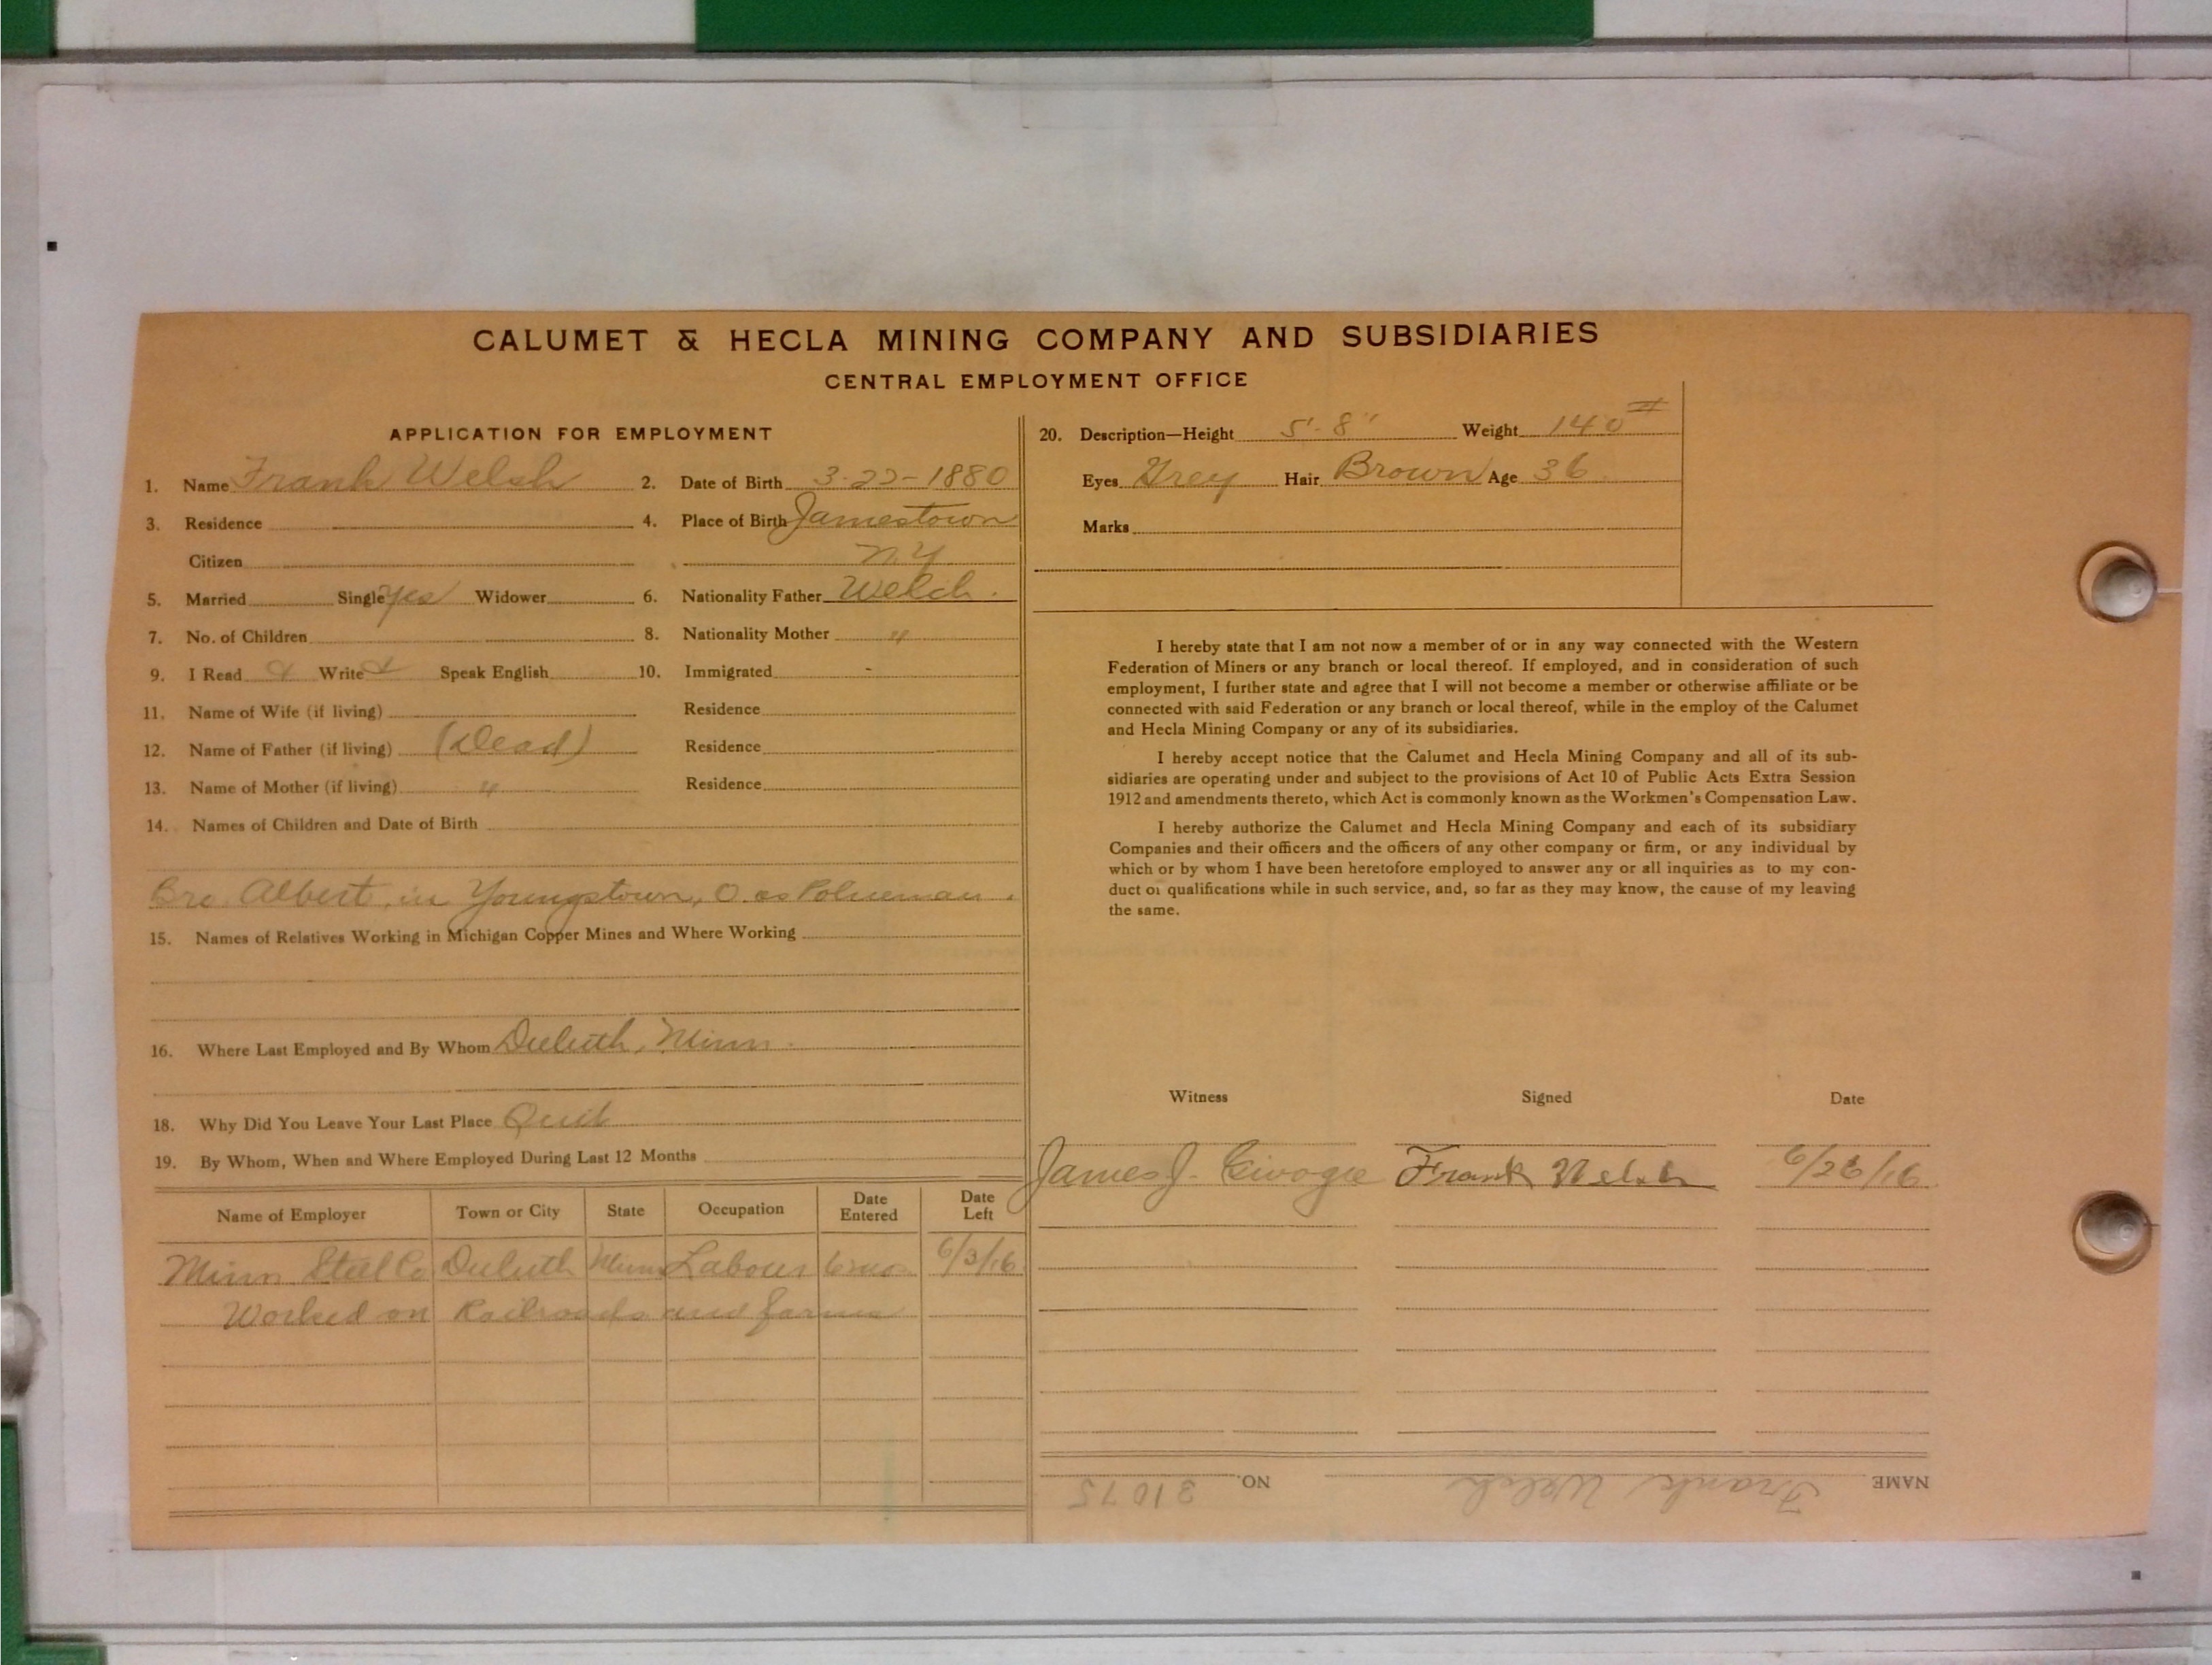 CALUMET & HECLA MINING COMPANY AND SUBSIDIARIES
CENTRAL EMPLOYMENT OFFICE
APPLICATION FOR EMPLOYMENT
1. Name Frank Welsh 2. Date of Birth 3-22-1880
3. Residence 4. Place of Birth Jamestown
Citizen N.Y
5. Married Single Yes Widower 6. Nationality Father Welch.
7. No. of Children 8. Nationality Mother "
9. I Read & Write & Speak English 10. Immigrated -
11. Name of Wife (if living) Residence
12. Name of Father (if living) (Dead) Residence
13. Name of Mother (if living) " Residence
14. Names of Children and Date of Birth
Bro. Albert, in Youngstown, O. as Policeman.
15. Names of Relatives Working in Michigan Copper Mines and Where Working
16. Where Last Employed and By Whom Duluth, Minn.
18. Why Did You Leave Your Last Place Quit
19. By Whom, When and Where Employed During Last 12 Months
Name of Employer Town or City State Occupation Date Entered Date Left
Minn Steel Co Duluth Minn Labour 6 mo. 6/3/16
Worked on Railroads and farms
20. Description—Height 5'-8" Weight 140 #
Eyes Grey Hair Brown Age 36
Marks
I hereby state that I am not now a member of or in any way connected with the Western
Federation of Miners or any branch or local thereof. If employed, and in consideration of such
employment, I further state and agree that I will not become a member or otherwise affiliate or be
connected with said Federation or any branch or local thereof, while in the employ of the Calumet
and Hecla Mining Company or any of its subsidiaries.
I hereby accept notice that the Calumet and Hecla Mining Company and all of its sub-
sidiaries are operating under and subject to the provisions of Act 10 of Public Acts Extra Session
1912 and amendments thereto, which Act is commonly known as the Workmen's Compensation Law.
I hereby authorize the Calumet and Hecla Mining Company and each of its subsidiary
Companies and their officers and the officers of any other company or firm, or any individual by
which or by whom I have been heretofore employed to answer any or all inquiries as to my con-
duct or qualifications while in such service, and, so far as they may know, the cause of my leaving
the same.
Witness Signed Date
James J. Frank Welsh 6/26/16
NAME Frank Welsh NO. 31075